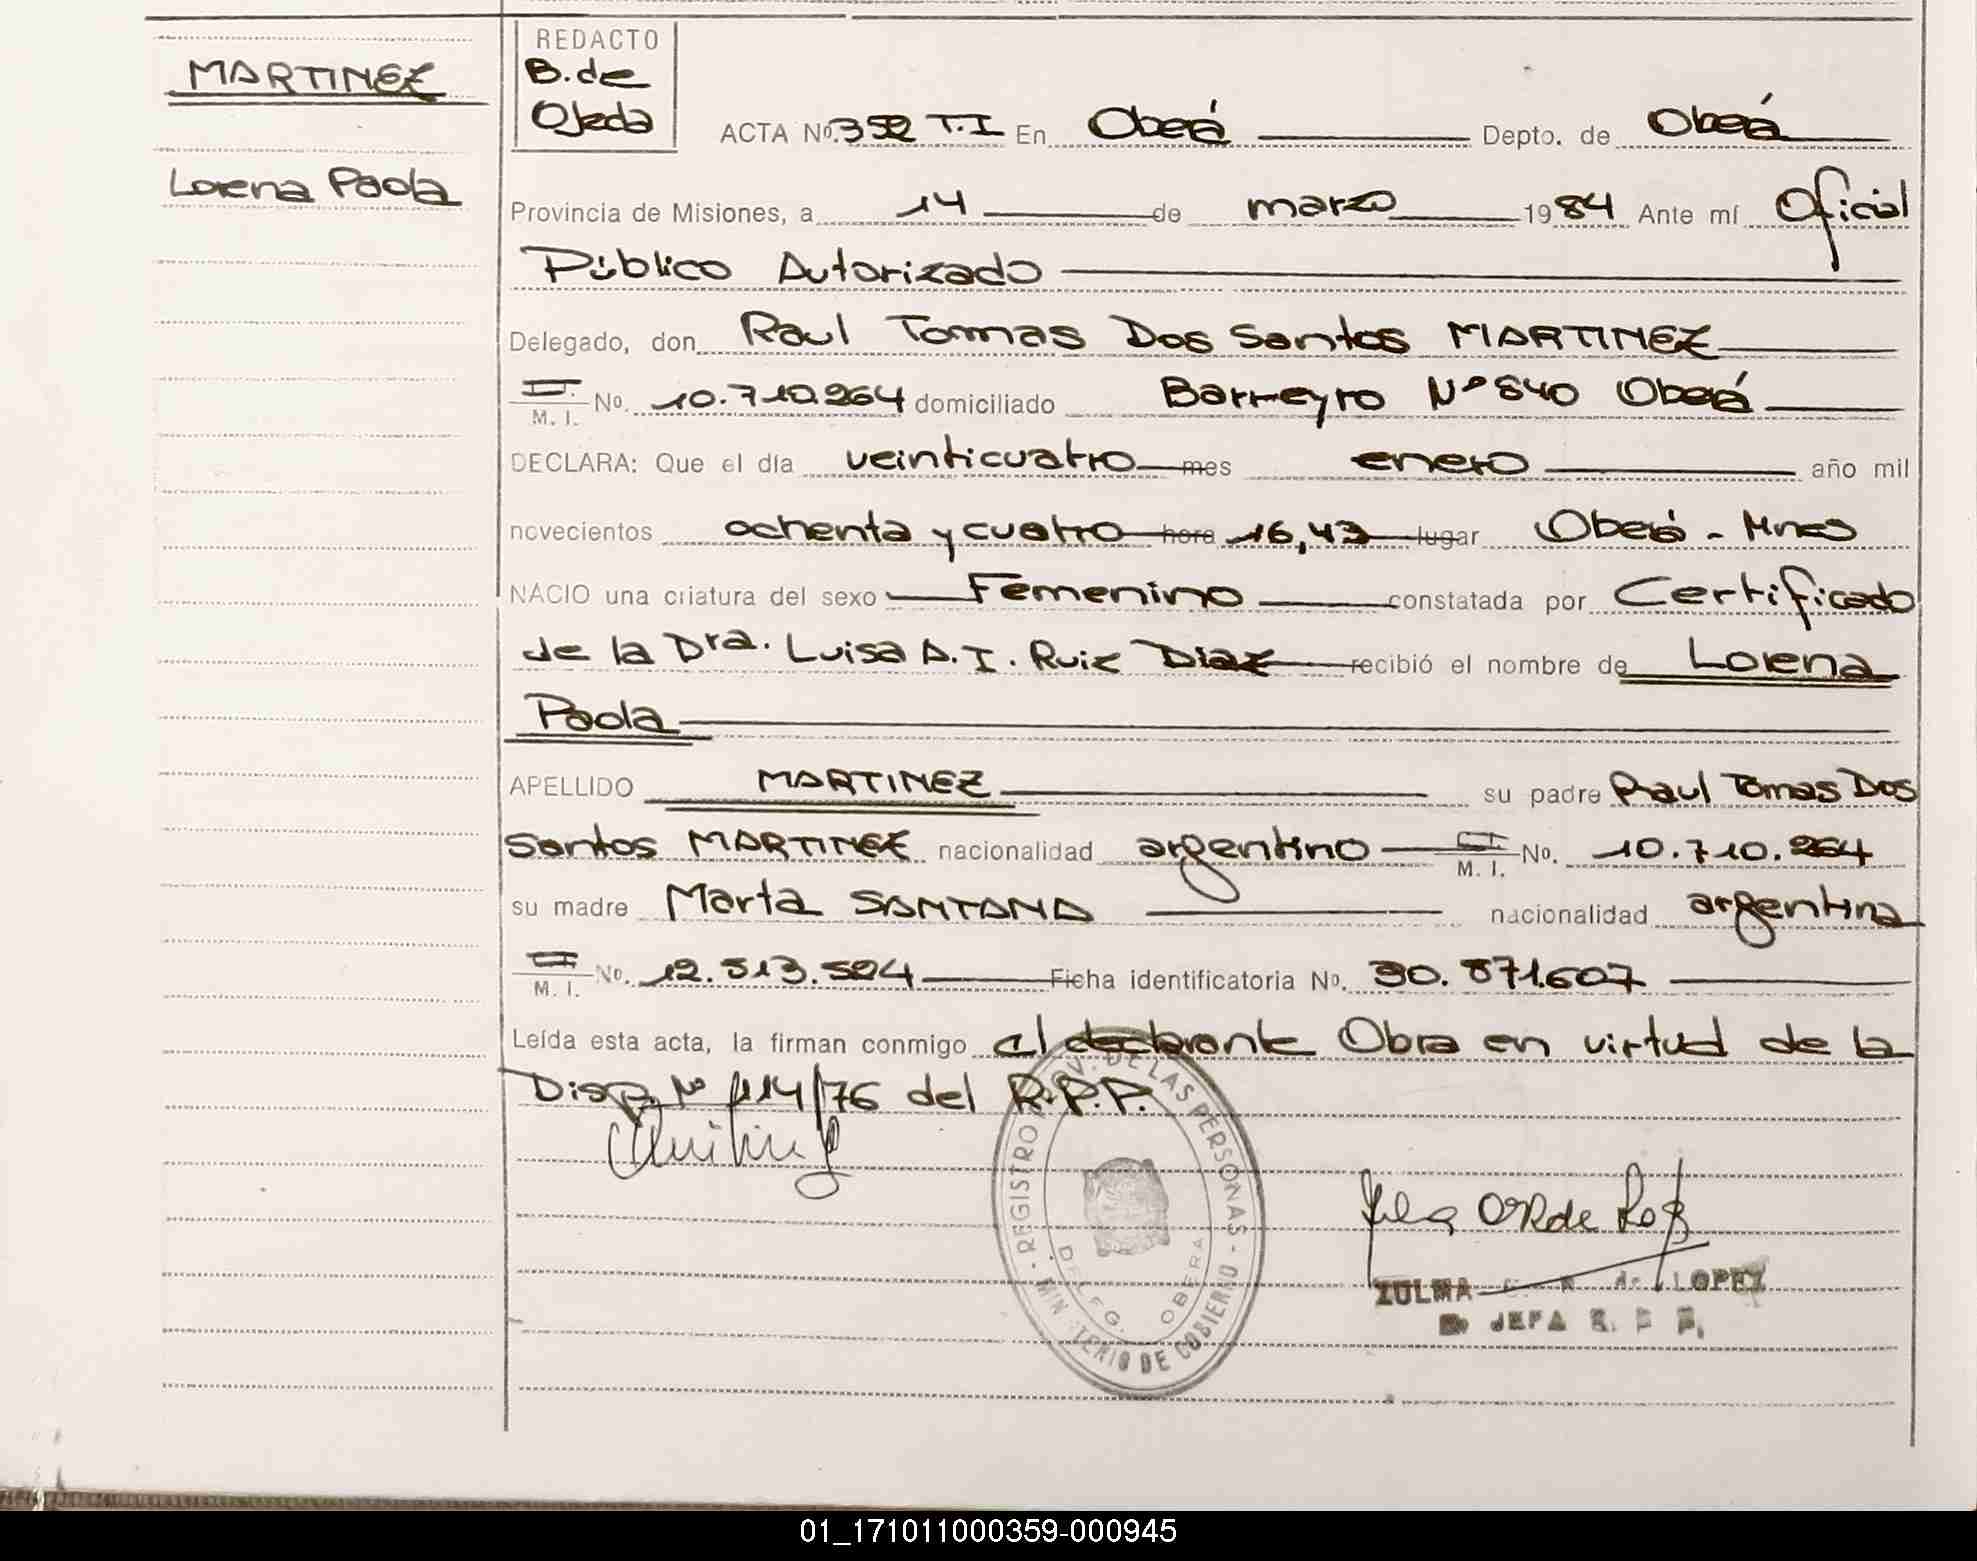 MARTINEZ
Lorena Paola
REDACTO
B. de
Ojeda
ACTA Nº. 352 T.I En Oberá Depto. de Oberá
Provincia de Misiones, a 14 de marzo 1984 Ante mí Oficial
Público Autorizado
Delegado, don Raul Tomas Dos Santos MARTINEZ
M. I. No. 10.710.264 domiciliado Barreyro Nº 840 Oberá
DECLARA: Que el día veinticuatro mes enero año mil
novecientos ochenta y cuatro hora 16,43 lugar Oberá - Mnes
NACIO una criatura del sexo Femenino constatada por Certificado
de la Dra. Luisa A. I. Ruiz Diaz recibió el nombre de Lorena
Paola
APELLIDO MARTINEZ su padre Raul Tomas Dos
Santos MARTINEZ nacionalidad argentino M. I. No. 10.710.264
su madre Marta SANTANA nacionalidad argentina
M. I. No. 12.513.524 Ficha identificatoria No. 30.871.607
Leída esta acta, la firman conmigo el declarante Obra en virtud de la
Disp. Nº 114/76 del R.P.P.
REGISTRO PROV. DE LAS PERSONAS - MINISTERIO DE GOBIERNO -
DELEG. OBERA
ZULMA de LOPEZ
JEFA R. P. P.
01_171011000359-000945